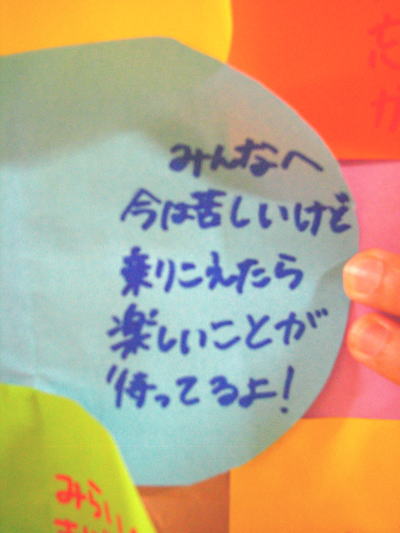 みんなへ
今は苦しいけど
乗りこえたら
楽しいことが
待ってるよ!
みらい